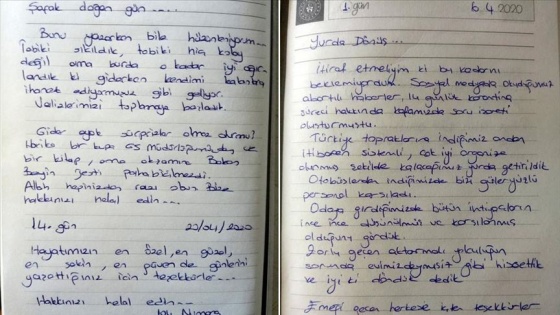 Şafak doğan gün ....
Bunu yazarken bile hüzünleniyorum...
Tabiki sıkıldık, tabiki hiç kolay
değil ama burda o kadar iyi ağır-
landık ki giderken kendimi kabama
ihanet ediyormuşum gibi geliyor.
Valizlerimizi toplamaya başladık.
Gider ayak sürprizler olma durumu?
Harika bir kupa GS müdürlüğümüzden ve
bir kitap, ama akşamına Bakan
Beyin jesti paha biçilmezdi.
Allah hepinizden razı olsun Bize
hakkınızı helal edin ...
14. gün 20/04/2020
Hayatımızın en özel, en güzel,
en sakin, en güvende günlerini
yazdığınız için teşekkürler...
Hakkınızı helal edin...
1. gün 6.4.2020
Yurda Dönüş...
İtiraf etmeliyim ki bu kadarını
beklemiyorduk. Sosyal medyada okuduğumuz
abartılı haberler, 14 günlük karantina
süreci hakkında kafamızda soru işareti
oluşturmuştu.
Türkiye topraklarına indiğimiz andan
itibaren sistemli, çok iyi organize
olunmuş şekilde kalacağımız yurda getirildik
Otobüslerden indiğimizde bizi güleryüzlü
personel karşıladı.
Odaya girdiğimizde bütün ihtiyaçların
ince ince düşünülmüş ve karşılanmış
olduğunu gördük.
Zorlu geçen aktarmalı yolculuğun
sonunda evimizdeymişiz gibi hissettik
ve iyi ki döndük dedik
Emeği geçen herkese teşekkürler